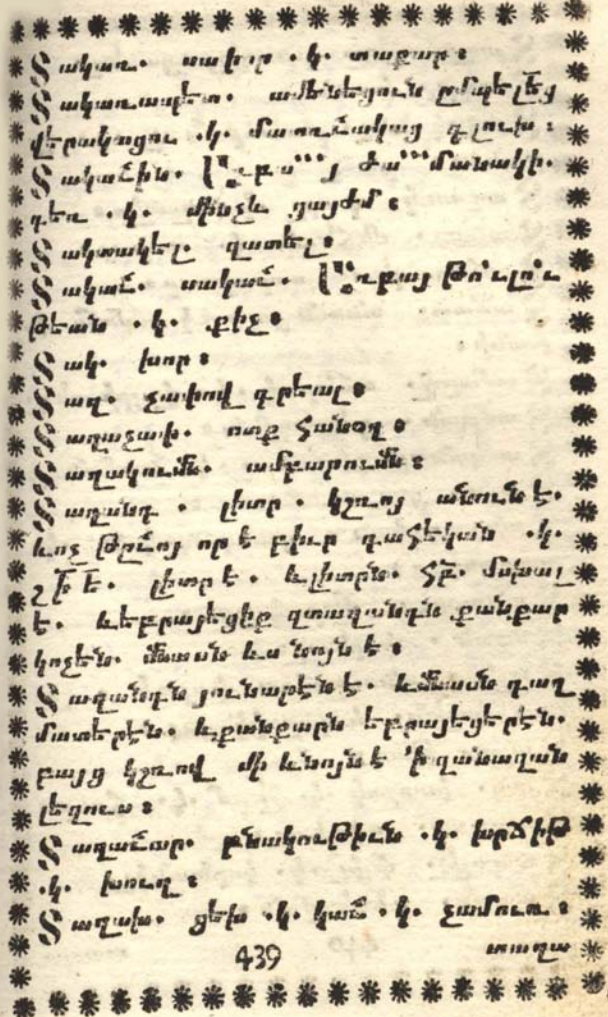 Տակառ. տափոր .կ. տաքար։
Տակառապետ. ամենեցուն ըմպելեց
վերակացու .կ. մատռւակաց գլուխ։
Տակաւին.
գեռ .կ. մինչև ցայժմ։
Տակտակել. զատել։
Տակաւ. սակաւ.
թեան .կ. քիչ։
Տակ. խոր։
Տաղ. չափով գրեալ։
Տաղաչափ. ոտք հանօղ։
Տաղակումն. ամբարումն։
Տաղանդ . լիտր . կշռոյ անուն է.
և ոչ թըւոյ որ է բիւր դահեկան .կ.
լիտր է. և լիտրն. մսխալ
է. և եբրայեցիք զտաղանդն քանքար
կոչեն. մնասն ևս նոյն է։
Տաղանդն յունարէն է. և մնասն դաղ
մատերէն. և քանքարն եբրայեցերէն.
բայց կշռով մի և նոյն է ՚ի զանազան
լեզուս։
Տաղաւար. բնակութիւն .կ. խրճիթ
.կ. խուղ։
Տաղախ. ցեխ .կ. կաւ .կ. շամուռ։
439 տաղտ